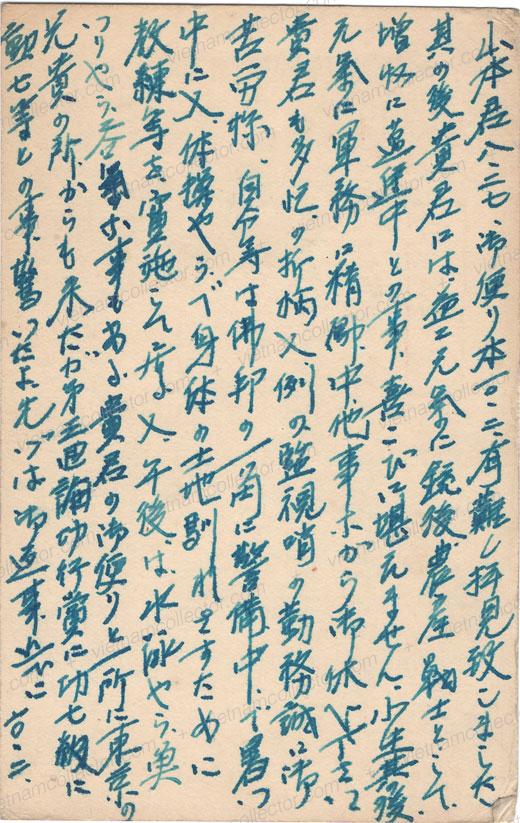 山本君八・二七、御便り本一〇・二二有難く拝見致しました
其の後貴君には益々元気に銃後農産戦士として、
増収に邁進中との事、喜こびに堪えません、小生其後
元気に軍務に精励中、他事ながら御休心下さい
貴君も多忙の折柄、又例の監視哨の勤務誠に御
苦労様、自分等は佛印の一角に警備中、で暑い
中に又、体操やらで身体の土地馴れさすために
教練等を実施して居る、又、午後は水泳やら魚
つりやら呑気な事もある、貴君の御便りと一所に東京の
兄貴の所からも来たが第三回論功行賞に功七級に
勲七等との事、驚ったよ先づは御返事迄に 一〇・二二
vietnamcollector.com